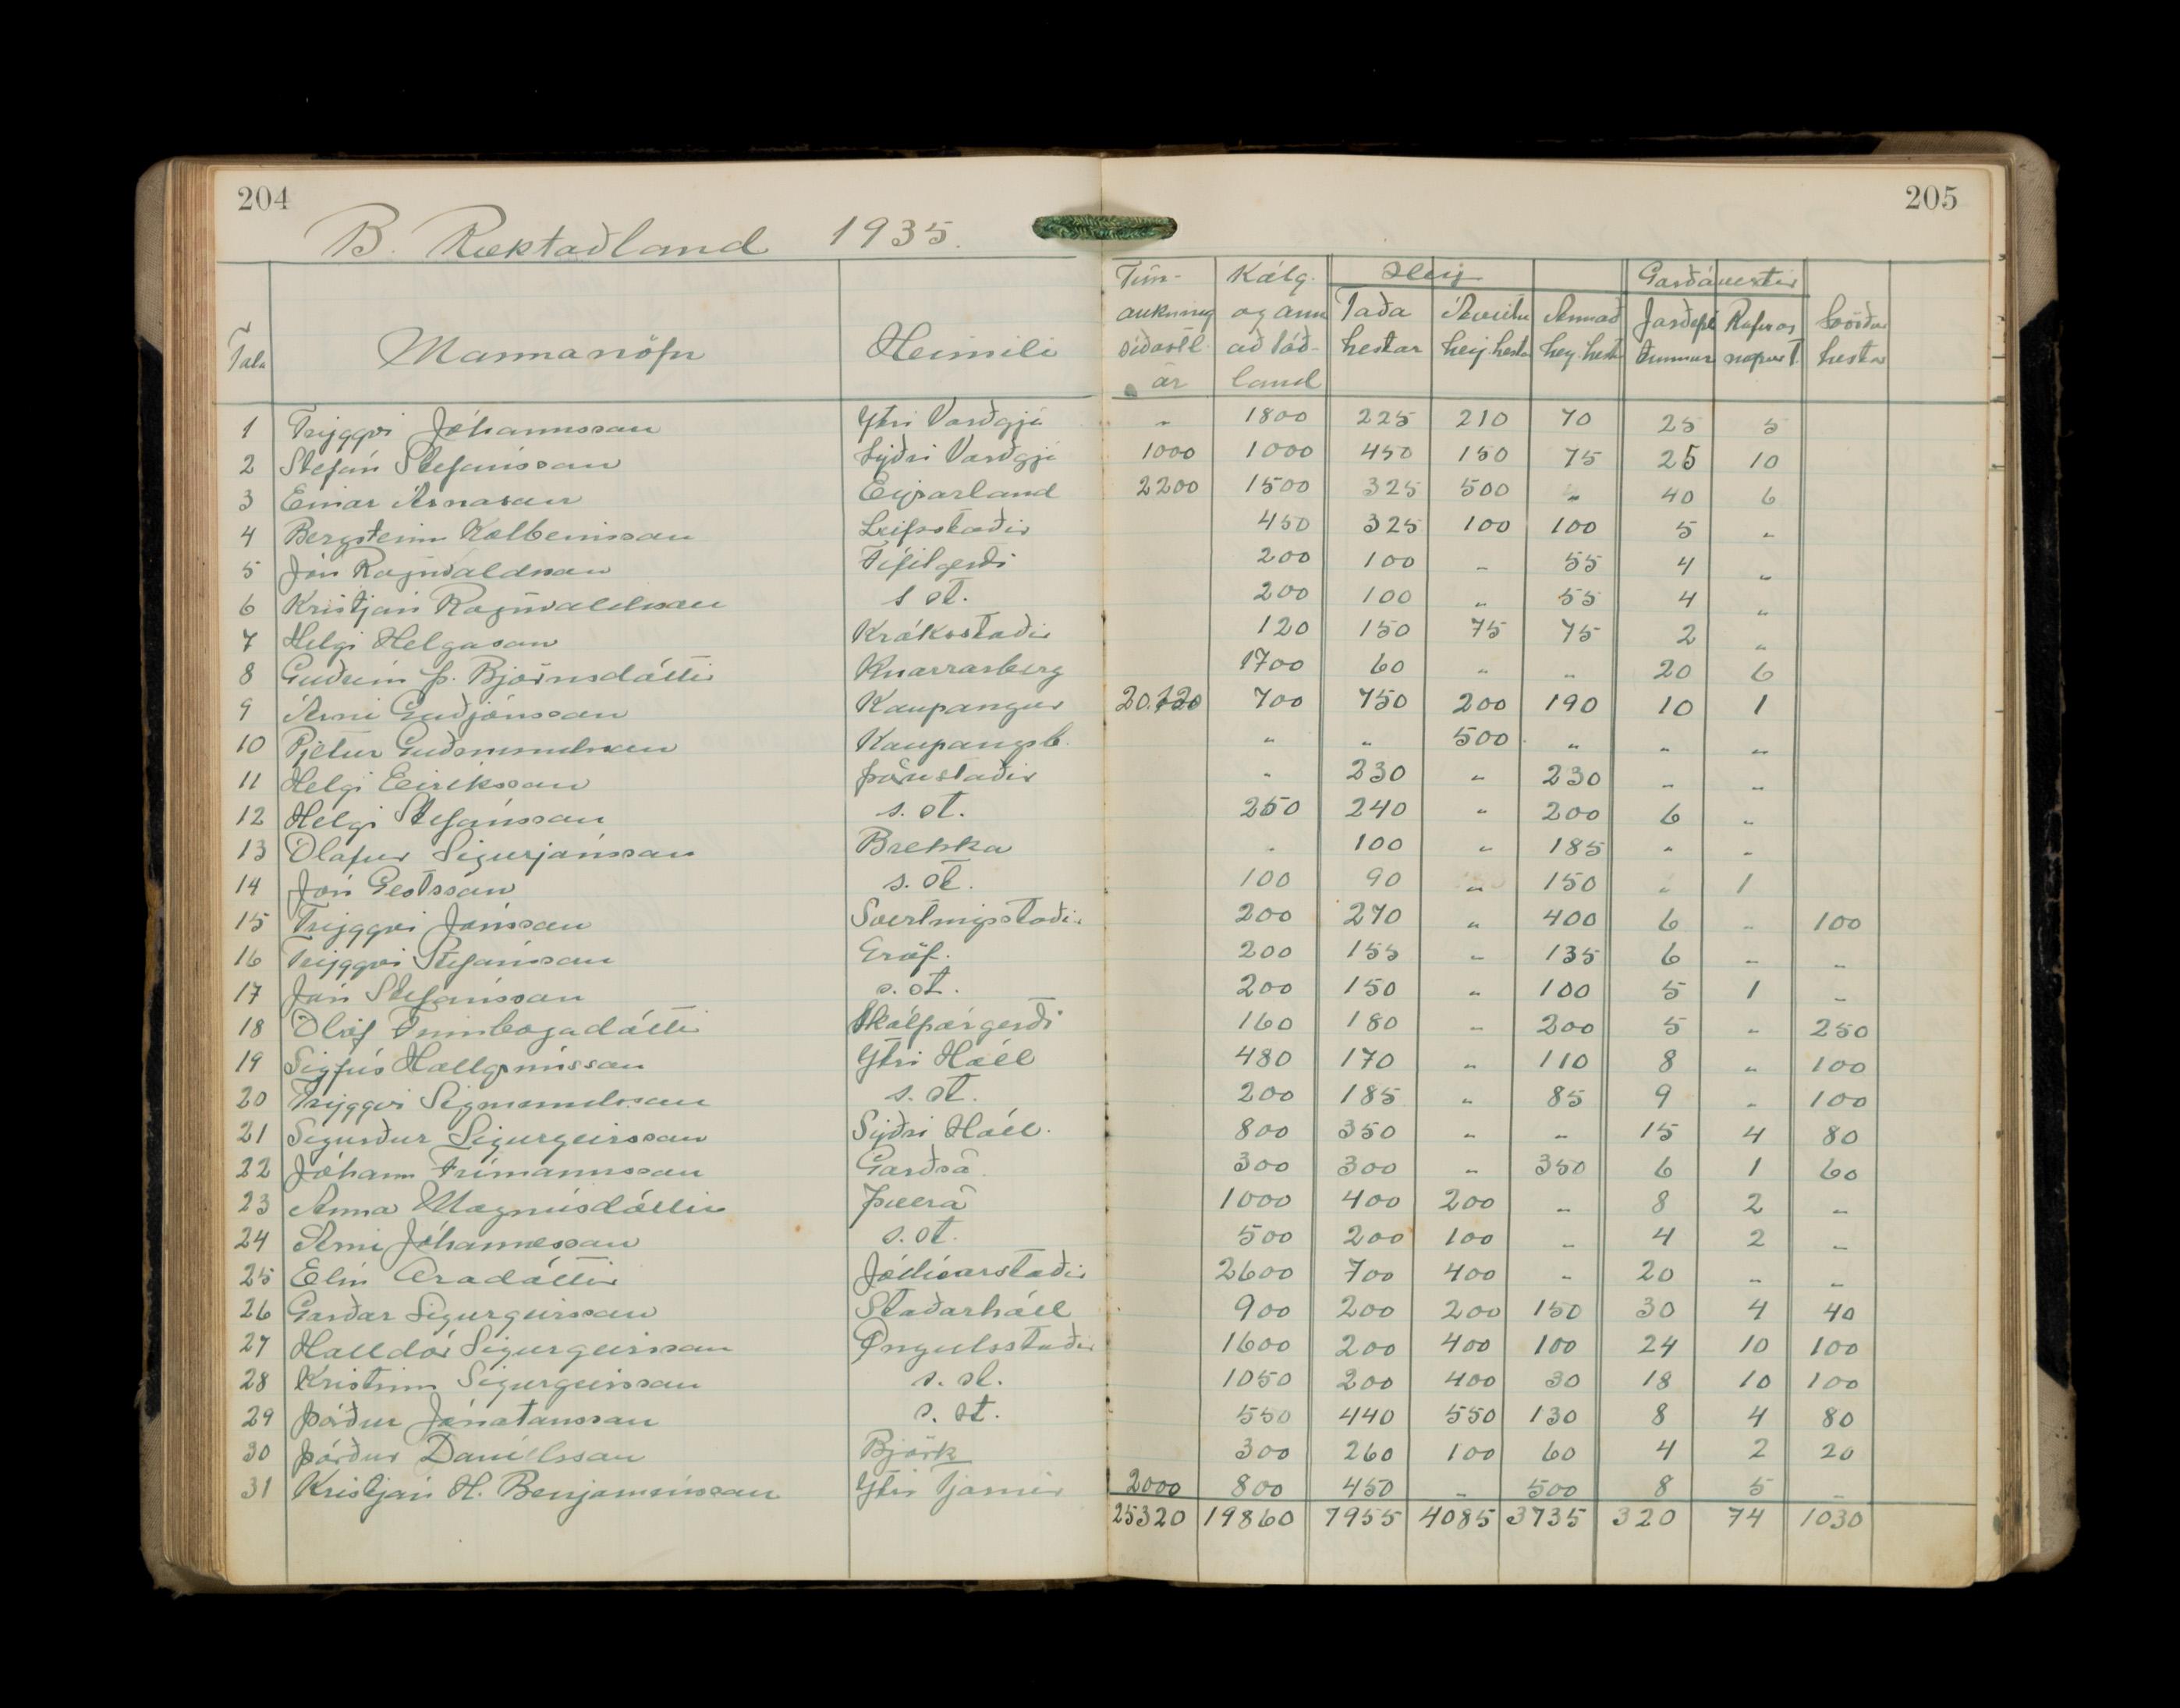 204
205
B. Ræktaðland 1935.
Tala Mannanöfn Heimili Tún- aukning síðastl. ár Kálg. og ann að sáð- land Hey Taða hestar Áveitu hey hesta Annað hey hest. Garðávextir Jarðepl tunnur Rófur og næpur t. hestar
1 Tryggvi Jóhannsson Ytri Varðgjá " 1800 225 210 70 25 5
2 Stefán Stefánsson Syðri Varðgjá 1000 1000 450 150 75 25 10
3 Einar Árnason Eyrarland 2200 1500 325 500 " 40 6
4 Bergsteinn Kolbeinsson Leifsstaðir 450 325 100 100 5 "
5 Jón Rögnvaldsson Fífilgerði 200 100 " 55 4 "
6 Kristján Rögnvaldsson s st. 200 100 " 55 4 "
7 Helgi Helgason Króksstaðir 120 150 75 75 2 "
8 Guðrún Þ. Björnsdóttir Knarrarberg 1700 60 " " 20 6
9 Árni Guðjónsson Kaupangur 20.120 700 750 200 190 10 1
10 Pjetur Guðmundsson Kaupangsb. " " 500 " " "
11 Helgi Eiríksson Þórustaðir " 230 " 230 " "
12 Helgi Stefánsson s. st. 250 240 " 200 6 "
13 Ólafur Sigurjónsson Brekka " 100 " 185 " "
14 Jón Gestsson s. st. 100 90 " 150 " 1
15 Tryggvi Jónsson Svertingsstaðir 200 270 " 400 6 " 100
16 Tryggvi Stefánsson Gröf. 200 155 " 135 6 " "
17 Jón Stefánsson s. st. 200 150 " 100 5 1 "
18 Ólöf Finnbogadóttir Skálpagerði 160 180 " 200 5 " 250
19 Sigfús Hallgrímsson Ytri Hóll 480 170 " 110 8 " 100
20 Tryggvi Sigmundsson s. st. 200 185 " 85 9 " 100
21 Sigurður Sigurgeirsson Syðri Hóll. 800 350 " " 15 4 80
22 Jóhann Frímannsson Garðsá 300 300 " 350 6 1 60
23 Anna Magnúsdóttir Þverá 1000 400 200 " 8 2 "
24 Árni Jóhannesson s. st. 500 200 100 " 4 2 "
25 Elín Aradóttir Jódísarstaðir 2600 700 400 " 20 " "
26 Garðar Sigurgeirsson Staðarhóll 900 200 200 150 30 4 40
27 Halldór Sigurgeirsson Öngulsstaðir 1600 200 400 100 24 10 100
28 Kristinn Sigurgeirsson s. st. 1050 200 400 30 18 10 100
29 Þórður Jónatansson s. st. 550 440 550 130 8 4 80
30 Þórður Daníelsson Björk 300 260 100 60 4 2 20
31 Kristján H. Benjamínsson Ytri Tjarnir 2000 800 450 " 500 8 5 "
25320 19860 7955 4085 3735 320 74 1030